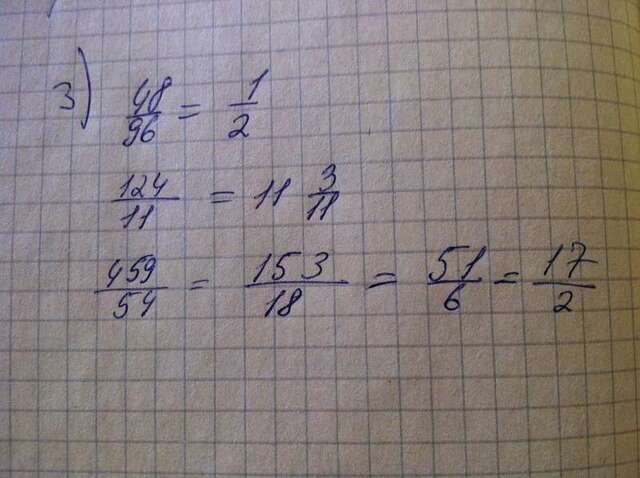 3)
48/96 = 1/2
124/11 = 11 3/11
459/54 = 153/18 = 51/6 = 17/2